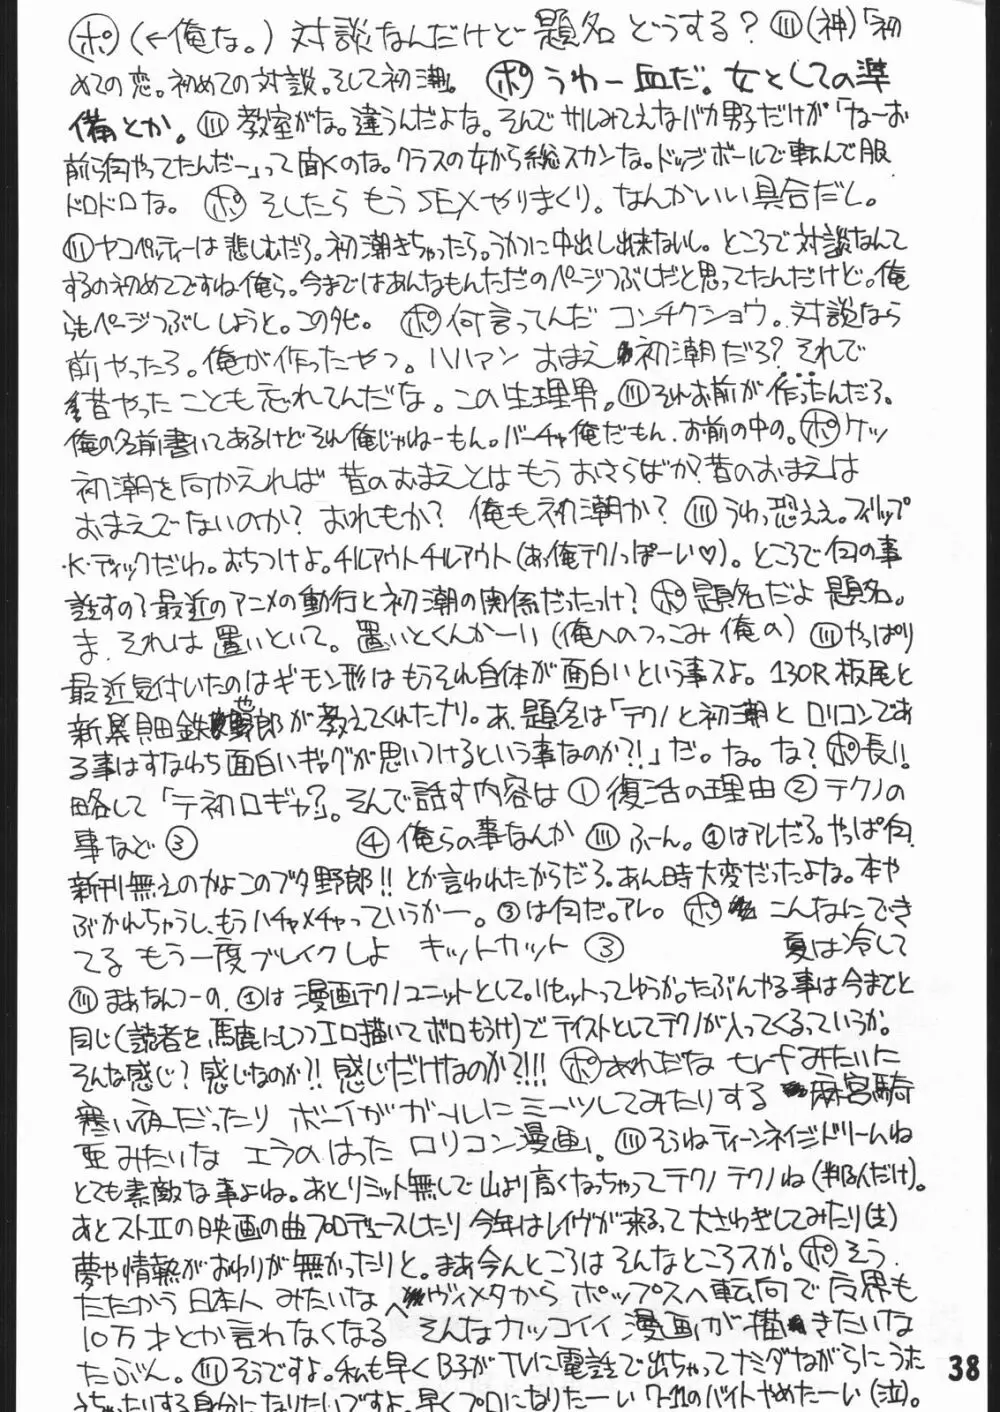 ポ(←俺な。)対談なんだけど題名どうする?川(神)「初
めての恋。初めての対談。そして初潮。」ポうわー血だ。女としての準
備とか。川教室がな。違うんだよな。そんでサルみてえなバカ男子だけが「なーお
前ら何やってたんだー」って聞くのな。クラスの女から総スカンな。ドッジボールで転んで服
ドロドロな。ポそしたらもうSEXやりまくり。なんかいい具合だし。
川ヤコペッティーは悲しむだろ。初潮きちゃったら。うかつに中出し出来ないし。ところで対談なんて
するの初めてですね俺ら。今まではあんなもんただのページつぶしだと思ってたんだけど。俺
らもページつぶししようと。このタビ。ポ何言ってんだコンチクショウ。対談なら
前やったろ。俺が作ったやつ。ハハァン おまえ初潮だろ?それで
昔やったことも忘れてんだな。この生理男。川それお前が作ったんだろ。
俺の名前書いてあるけどそれ俺じゃねーもん。バーチャ俺だもん、お前の中の。ポケッ
初潮を向かえれば昔のおまえとはもうおさらばか?昔のおまえは
おまえでないのか?おれもか?俺も初潮か?川うわっ恐ええ。フィリップ
・K・ディックだわ。おちつけよ。チルアウトチルアウト(あっ俺テクノっぽーい♡)。ところで何の事
話すの?最近のアニメの動行と初潮の関係だったっけ?ポ題名だよ題名。
ま、それは置いといて。置いとくんかーい(俺へのつっこみ俺の)川やっぱり
最近気付いたのはギモン形はもうそれ自体が面白いという事スよ。130R板尾と
新黒貝田鉄野郎が教えてくれたナリ。あ、題名は「テクノと初潮とロリコンであ
る事はすなわち面白いギャグが思いつけるという事なのか?!」だ。な。な?ポ長い!
略して「テ初ロギャ?」。そんで話す内容は①復活の理由②テクノの
事など③ ④俺らの事なんか 川ふーん。①はアレだろ。やっぱ何、
新刊無えのかよこのブタ野郎!!とか言われたからだろ。あん時大変だったよな。本や
ぶかれちゃうし、もうハチャメチャっていうかー。③は何だ。アレ。ポこんなにでき
てるもう一度ブレイクしよ キットカット③ 夏は冷して
川まあなんつーの、①は漫画テクノユニットとして。リセットってゆうか。たぶんやる事は今までと
同じ(読者を馬鹿にしつつエロ描いてボロもうけ)でテイストとしてテクノが入ってくるっていうか。
そんな感じ?感じなのか?!感じだけなのか?!!!ポあれだな trfみたいに
寒い夜だったりボーイがガールにミーツしてみたりする麻宮騎
亜みたいなエラのはったロリコン漫画」。川そうねティーンネイジドリームね
とても素敵な事よね。あとリミット無しで山より高くなっちゃってテクノテクノね(判る人だけ)。
あとストⅡの映画の曲プロデュースしたり今年はレイヴが来るって大さわぎしてみたり(え)
夢や情熱がおわりが無かったりと。まあ今んところはそんなところスか。ポそう、
たたかう日本人みたいなヘヴィメタからポップスへ転向で反界も
10万才とか言わなくなる そんなカッコイイ漫画が描きたいな
たぶん。川そうですよ。私も早くB子がTVに電話で出ちゃってナミダながらにうた
うちゃったりする身分になりたいですよ。早くプロになりたーいワ-11のバイトやめたーい(泣)。
38